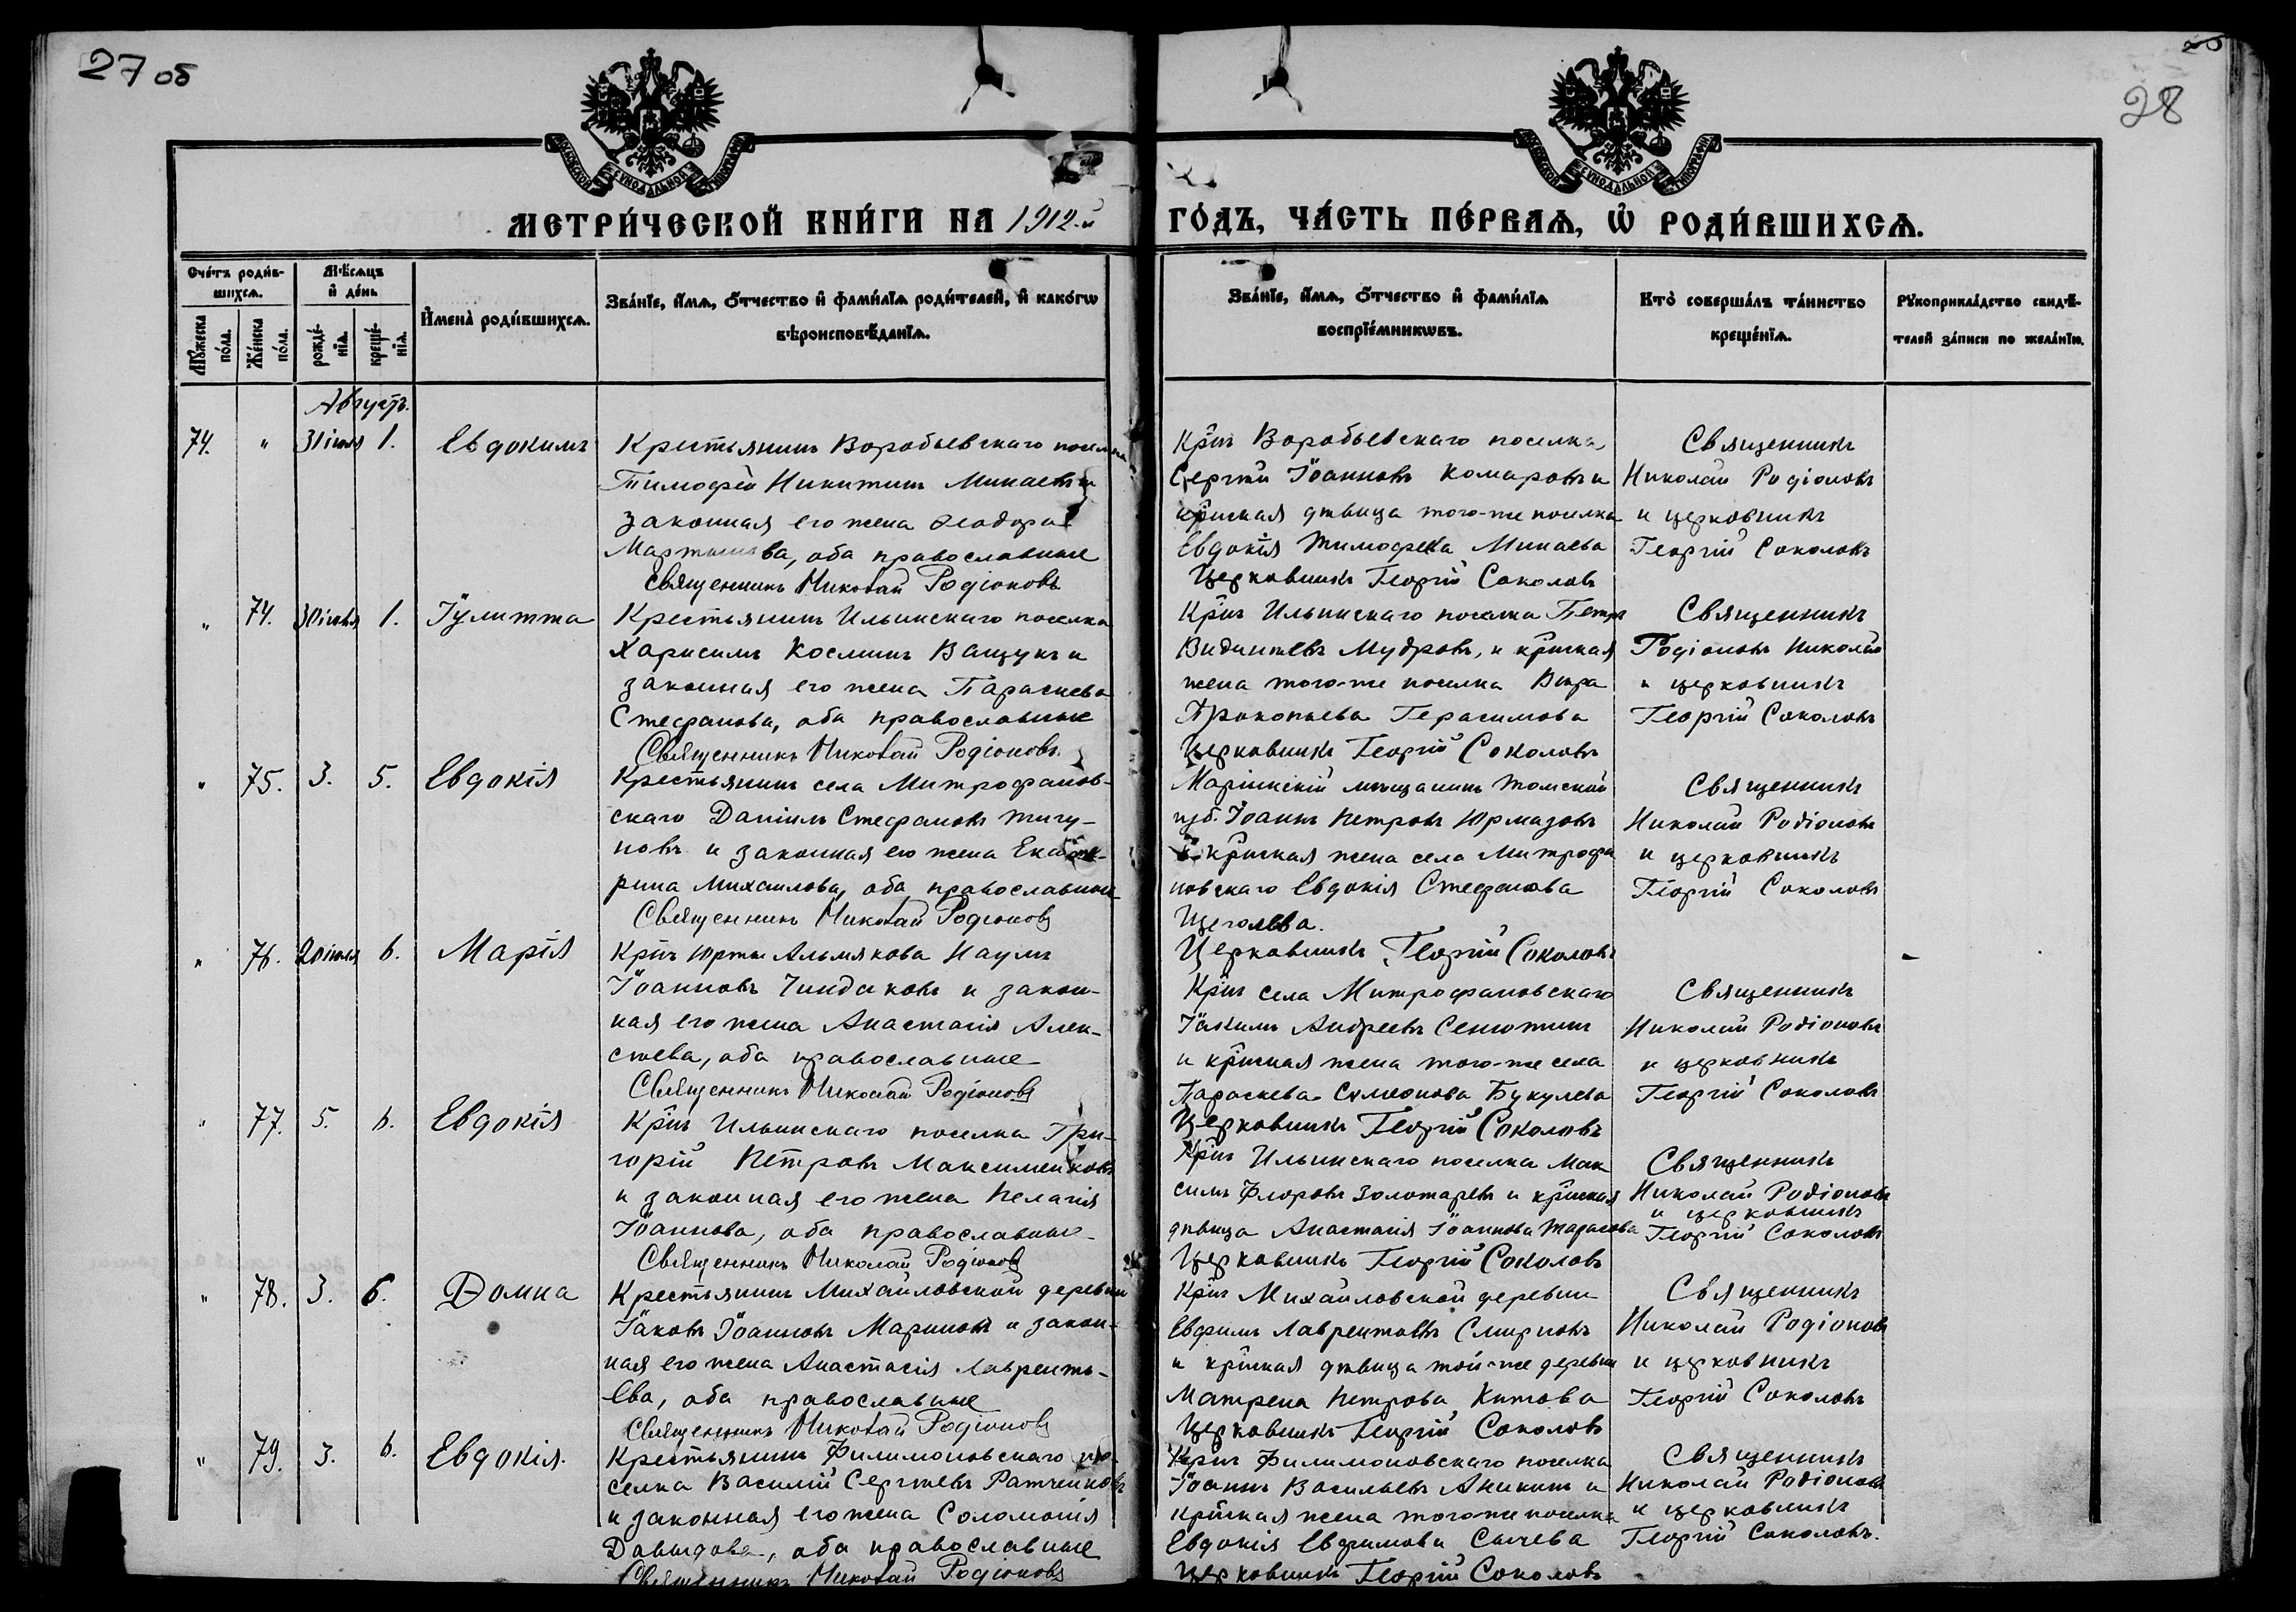 27 об
28
МОСКОВСКОЙ СѴНОДАЛЬНОЙ ТИПОГРАФІИ
МОСКОВСКОЙ СѴНОДАЛЬНОЙ ТИПОГРАФІИ
МЕТРИ́ЧЕСКОЙ КНИ́ГИ НА 1912-й ГО́ДЪ, ЧА́СТЬ ПЕ́РВАѦ, Ѡ҆ РОДИ́ВШИХСѦ.
Сче́тъ роди́в-
шихсѧ.
Мꙋ́жеска по́ла.
Же́нска по́ла.
Мѣ́сѧцъ
и҆ де́нь
рожде́-
нїѧ.
креще́-
нїѧ.
И҆мена̀ роди́вшихсѧ.
Зва́нїе, и҆́мѧ, ѻ҆́тчество и҆ фами́лїѧ роди́телей, и҆ како́гѡ
вѣроисповѣ́данїѧ.
Зва́нїе, и҆́мѧ, ѻ҆́тчество и҆ фами́лїѧ
воспрїе́мникѡвъ.
Кто̀ соверша́лъ та́инство
креще́нїѧ.
Рꙋкоприкла́дство свидѣ́-
телей за́писи по жела́нїю.
Августъ.
74. " 31 іюля 1. Евдокимъ
Крестьянинъ Воробьевскаго поселка
Тимофей Никитинъ Минаевъ и
законная его жена Ѳеодора
Мартынова, оба православные
Священникъ Николай Родіоновъ
Кр̃нъ Воробьевскаго поселка,
Сергѣй Іоанновъ Комаровъ и
кр̃нская дѣвица того-же поселка
Евдокія Тимофеева Минаева
Церковникъ Георгій Соколовъ
Священникъ
Николай Родіоновъ
и церковникъ
Георгій Соколовъ
" 74. 30 іюля 1. Іулитта
Крестьянинъ Ильинскаго поселка
Харисимъ Косминъ Ващукъ и
законная его жена Параскева
Стефанова, оба православные
Священникъ Николай Родіоновъ.
Кр̃нъ Ильинскаго поселка Петръ
Мудровъ, и кр̃нская
жена того-же поселка Вѣра
Прокопьева Герасимова
Церковникъ Георгій Соколовъ
Священникъ
Родіоновъ Николай
и церковникъ
Георгій Соколовъ
" 75. 3. 5. Евдокія
Крестьянинъ села Митрофанов-
скаго Даніилъ Стефановъ Тигу-
новъ и законная его жена Екате-
рина Михаилова, оба православные
Священникъ Николай Родіоновъ
Маріинскій мѣщанинъ Томской
губ. Іоаннъ Петровъ Юрмазовъ
и кр̃нская жена села Митрофа
новскаго Евдокія Стефанова
Щеголева.
Церковникъ Георгій Соколовъ
Священникъ
Николай Родіоновъ
и церковникъ
Георгій Соколовъ
" 76. 20 іюля 6. Марія
Кр̃нъ Юрты Альмякова Наумъ
Іоанновъ Чиндаковъ и закон-
ная его жена Анастасія Алек-
сѣева, оба православные
Священникъ Николай Родіоновъ
Кр̃нъ села Митрофановскаго
Іакимъ Андреевъ Сенютинъ
и кр̃нская жена того-же села
Параскева Симеонова Букулева
Церковникъ Георгій Соколовъ
Священникъ
Николай Родіоновъ
и церковникъ
Георгій Соколовъ
" 77. 5. 6. Евдокія
Кр̃нъ Ильинскаго поселка Гри-
горій Петровъ Максименковъ
и законная его жена Пелагія
Іоаннова, оба православные
Священникъ Николай Родіоновъ
Кр̃нъ Ильинскаго поселка Мак
симъ Флоровъ Золотаревъ и кр̃нская
дѣвица Анастасія Іоаннова Тарасова
Церковникъ Георгій Соколовъ
Священникъ
Николай Родіоновъ
и церковникъ
Георгій Соколовъ
" 78. 3. 6. Домна
Крестьянинъ Михайловской деревни
Іаковъ Іоанновъ Мариновъ и закон-
ная его жена Анастасія Лавренть-
ева, оба православные
Священникъ Николай Родіоновъ
Кр̃нъ Михайловской деревни
Евфимъ Лаврентьевъ Смирновъ
и кр̃нская дѣвица той-же деревни
Матрена Петрова Китова
Церковникъ Георгій Соколовъ
Священникъ
Николай Родіоновъ
и церковникъ
Георгій Соколовъ
" 79. 3. 6. Евдокія.
Крестьянинъ Филимоновскаго по-
селка Василій Сергѣевъ Ратченковъ
и законная его жена Соломонія
Давыдова, оба православные
Священникъ Николай Родіоновъ
Кр̃нъ Филимоновскаго поселка
Іоаннъ Васильевъ Аникинъ и
кр̃нская жена того-же поселка
Евдокія Евфимова Сычева
Церковникъ Георгій Соколовъ
Священникъ
Николай Родіоновъ
и церковникъ
Георгій Соколовъ.